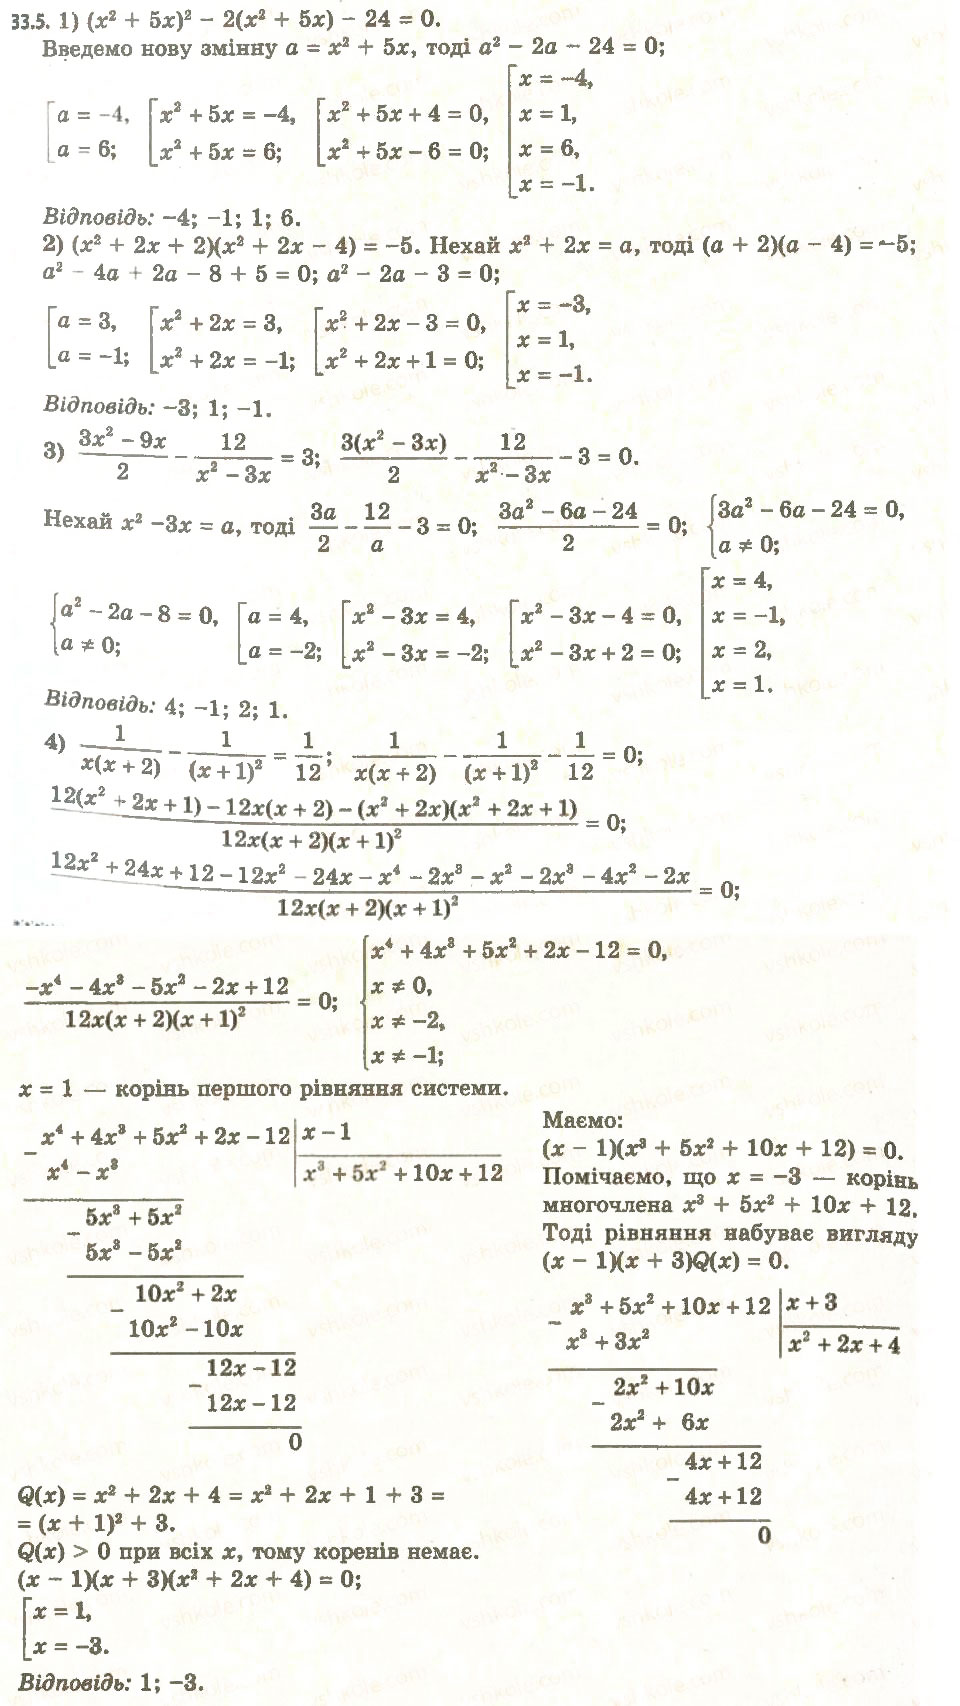 33.5. 1) (x² + 5x)² − 2(x² + 5x) − 24 = 0.
Введемо нову змінну a = x² + 5x, тоді a² − 2a − 24 = 0;
[a = −4, a = 6; [x² + 5x = −4, x² + 5x = 6; [x² + 5x + 4 = 0, x² + 5x − 6 = 0; [x = −4, x = 1, x = 6, x = −1.
Відповідь: −4; −1; 1; 6.
2) (x² + 2x + 2)(x² + 2x − 4) = −5. Нехай x² + 2x = a, тоді (a + 2)(a − 4) = −5;
a² − 4a + 2a − 8 + 5 = 0; a² − 2a − 3 = 0;
[a = 3, a = −1; [x² + 2x = 3, x² + 2x = −1; [x² + 2x − 3 = 0, x² + 2x + 1 = 0; [x = −3, x = 1, x = −1.
Відповідь: −3; 1; −1.
3) (3x² − 9x)/2 − 12/(x² − 3x) = 3; 3(x² − 3x)/2 − 12/(x² − 3x) − 3 = 0.
Нехай x² −3x = a, тоді 3a/2 − 12/a − 3 = 0; (3a² − 6a − 24)/2 = 0; {3a² − 6a − 24 = 0, a ≠ 0;
{a² − 2a − 8 = 0, a ≠ 0; [a = 4, a = −2; [x² − 3x = 4, x² − 3x = −2; [x² − 3x − 4 = 0, x² − 3x + 2 = 0; [x = 4, x = −1, x = 2, x = 1.
Відповідь: 4; −1; 2; 1.
4) 1/(x(x + 2)) − 1/(x + 1)² = 1/12; 1/(x(x + 2)) − 1/(x + 1)² − 1/12 = 0;
(12(x² + 2x + 1) − 12x(x + 2) − (x² + 2x)(x² + 2x + 1))/(12x(x + 2)(x + 1)²) = 0;
(12x² + 24x + 12 − 12x² − 24x − x⁴ − 2x³ − x² − 2x³ − 4x² − 2x)/(12x(x + 2)(x + 1)²) = 0;
(−x⁴ − 4x³ − 5x² − 2x + 12)/(12x(x + 2)(x + 1)²) = 0; {x⁴ + 4x³ + 5x² + 2x − 12 = 0, x ≠ 0, x ≠ −2, x ≠ −1;
x = 1 — корінь першого рівняння системи.
x⁴ + 4x³ + 5x² + 2x − 12 | x − 1
x⁴ − x³ | x³ + 5x² + 10x + 12
5x³ + 5x²
5x³ − 5x²
10x² + 2x
10x² − 10x
12x − 12
12x − 12
0
Маємо:
(x − 1)(x³ + 5x² + 10x + 12) = 0.
Помічаємо, що x = −3 — корінь
многочлена x³ + 5x² + 10x + 12.
Тоді рівняння набуває вигляду
(x − 1)(x + 3)Q(x) = 0.
x³ + 5x² + 10x + 12 | x + 3
x³ + 3x² | x² + 2x + 4
2x² + 10x
2x² + 6x
4x + 12
4x + 12
0
Q(x) = x² + 2x + 4 = x² + 2x + 1 + 3 =
= (x + 1)² + 3.
Q(x) > 0 при всіх x, тому коренів немає.
(x − 1)(x + 3)(x² + 2x + 4) = 0;
[x = 1,
x = −3.
Відповідь: 1; −3.